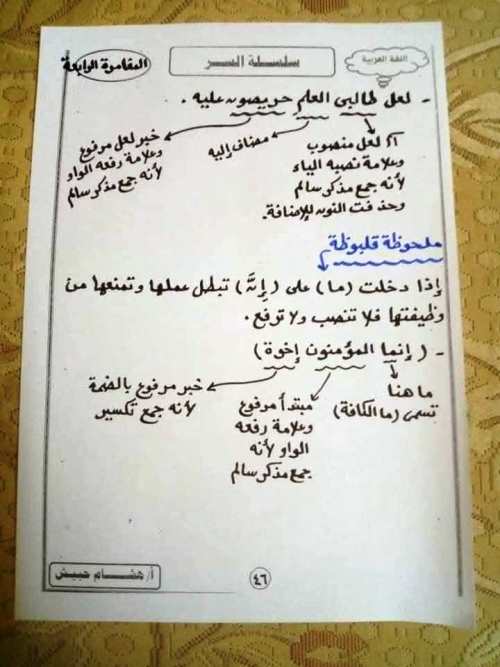 اللغة العربية
سلسلة السر
المغامرة الرابعة
- لعل طالبى العلم حريصون عليه .
اسم لعل منصوب
وعلامة نصبه الياء
لأنه جمع مذكر سالم
وحذفت النون للإضافة.
مضاف إليه
خبر لعل مرفوع
وعلامة رفعه الواو
لأنه جمع مذكر سالم
ملحوظة قلبوظة
إذا دخلت (ما) على (إنَّ) تبطل عملها وتمنعها من
وظيفتها فلا تنصب ولا ترفع .
- ( إنما المؤمنون إخوة )
ما هنا
تسمى (ما الكافة)
مبتدأ مرفوع
وعلامة رفعه
الواو لأنه
جمع مذكر سالم
خبر مرفوع بالضمة
لأنه جمع تكسير
أ/ هشام حبيش
٤٦